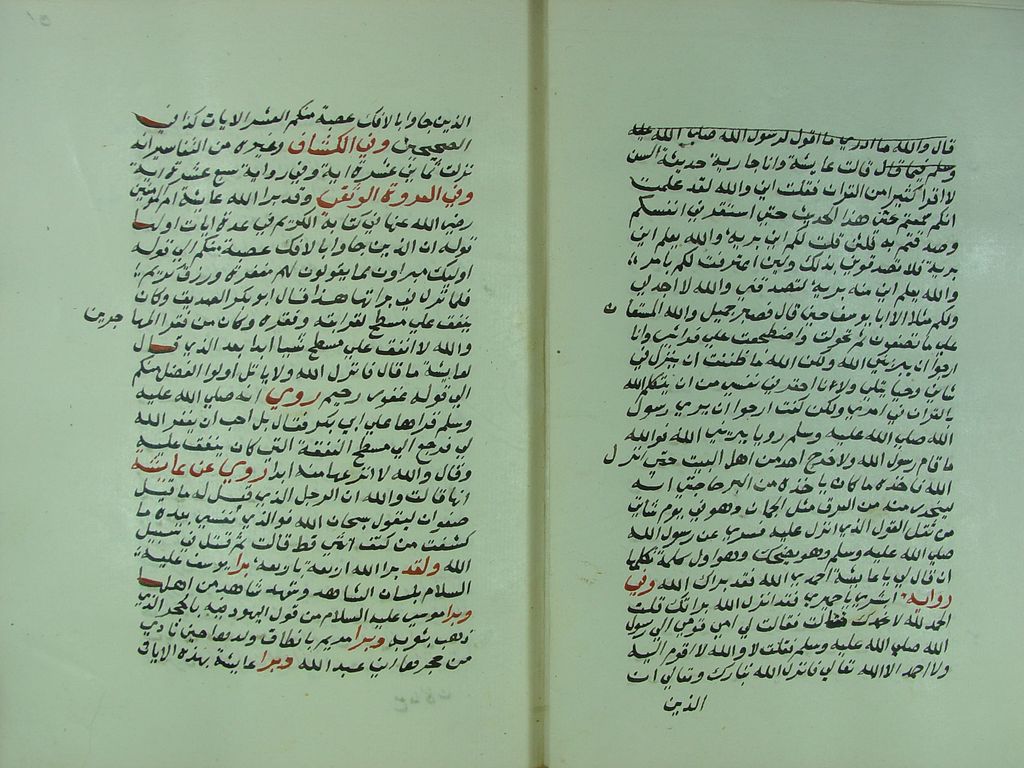 قال والله ما ادري ما اقول لرسول الله صلى الله عليه
وسلم فيما قال قالت عايشة وانا جارية حديثة السن
لا اقرا كثيرا من القران فقلت اني والله لقد علمت
انكم سمعتم هذا الحديث حتى استقر في انفسكم
وصدقتم به فلئن قلت لكم اني برية والله يعلم اني
برية فلا تصدقوني بذلك ولين اعترفت لكم بامر
والله يعلم اني منه برية لتصدقني والله لا اجد لي
ولكم مثلا الا ابا يوسف حين قال فصبر جميل والله المستعان
على ما تصفون ثم تحولت واضطجعت على فراشي وانا
ارجوا ان يبريني الله ولكن الله ما ظننت ان ينزل في
شاني وحيا يتلى ولانا احقر في نفسي من ان يتكلم الله
بالقران في امري ولكن كنت ارجوا ان يري رسول
الله صلى الله عليه وسلم رويا يبريني الله فوالله
ما قام رسول الله ولا خرج احد من اهل البيت حتى انزل
الله فاخذه ما كان ياخذه من البرحا حتى انه
ليتحدر منه من العرق مثل الجمان وهو في يوم شاتي
من ثقل القول الذي انزل عليه فسري عن رسول الله
صلى الله عليه وسلم وهو يضحك وهو اول كلمة تكلم بها
ان قال لي يا عايشة احمدي الله فقد براك الله وفي
رواية ابشري يا حميرا فقد انزل الله براتك قلت
الحمد لله لا بحمدك فقالت لي امي قومي الى رسول
الله صلى الله عليه وسلم فقلت لا والله لا اقوم اليه
ولا احمد الا الله تعالى فانزل الله تبارك وتعالى ان
الذين
الذين جاوا بالافك عصبة منكم العشر الايات كذا في
الصحيحين وفي الكشاف وغيره من التفاسير انه
نزلت ثماني عشرة اية وفي رواية سبع عشرة اية
وفي العروة الوثقى وقد برا الله عايشة ام المومنين
رضي الله عنها في كتابه الكريم في عدة ايات اولها
قوله ان الذين جاوا بالافك عصبة منكم الى قوله
اوليك مبراون مما يقولون لهم مغفرة ورزق كريم
فلما نزل في براتها هذا قال ابو بكر الصديق وكان
ينفق على مسطح لقرابته وفقره وكان من فقرا المهاجرين
والله لا انفق على مسطح شيا ابدا بعد الذي قال
لعايشة ما قال فانزل الله ولا ياتل اولوا الفضل منكم
الى قوله غفور رحيم روي انه صلى الله عليه
وسلم قراها على ابي بكر فقال بلى احب ان يغفر الله
لي فرجع الى مسطح النفقة التي كان ينفق عليه
وقال والله لا انزعها منه ابدا روي عن عايشة
انها قالت والله ان الرجل الذي قيل له ما قيل
صفوان ليقول سبحان الله فوالذي نفسي بيده ما
كشفت من كنف انثى قط قالت ثم قتل في سبيل
الله ولقد برا الله اربعة باربعة برا يوسف عليه
السلام بلسان الشاهد وشهد شاهد من اهلها
وبرا موسى عليه السلام من قول اليهود فيه بالحجر الذي
ذهب بثوبه وبرا مريم بانطاق ولدها حين نادى
من حجرها اني عبد الله وبرا عايشة بهذه الايات